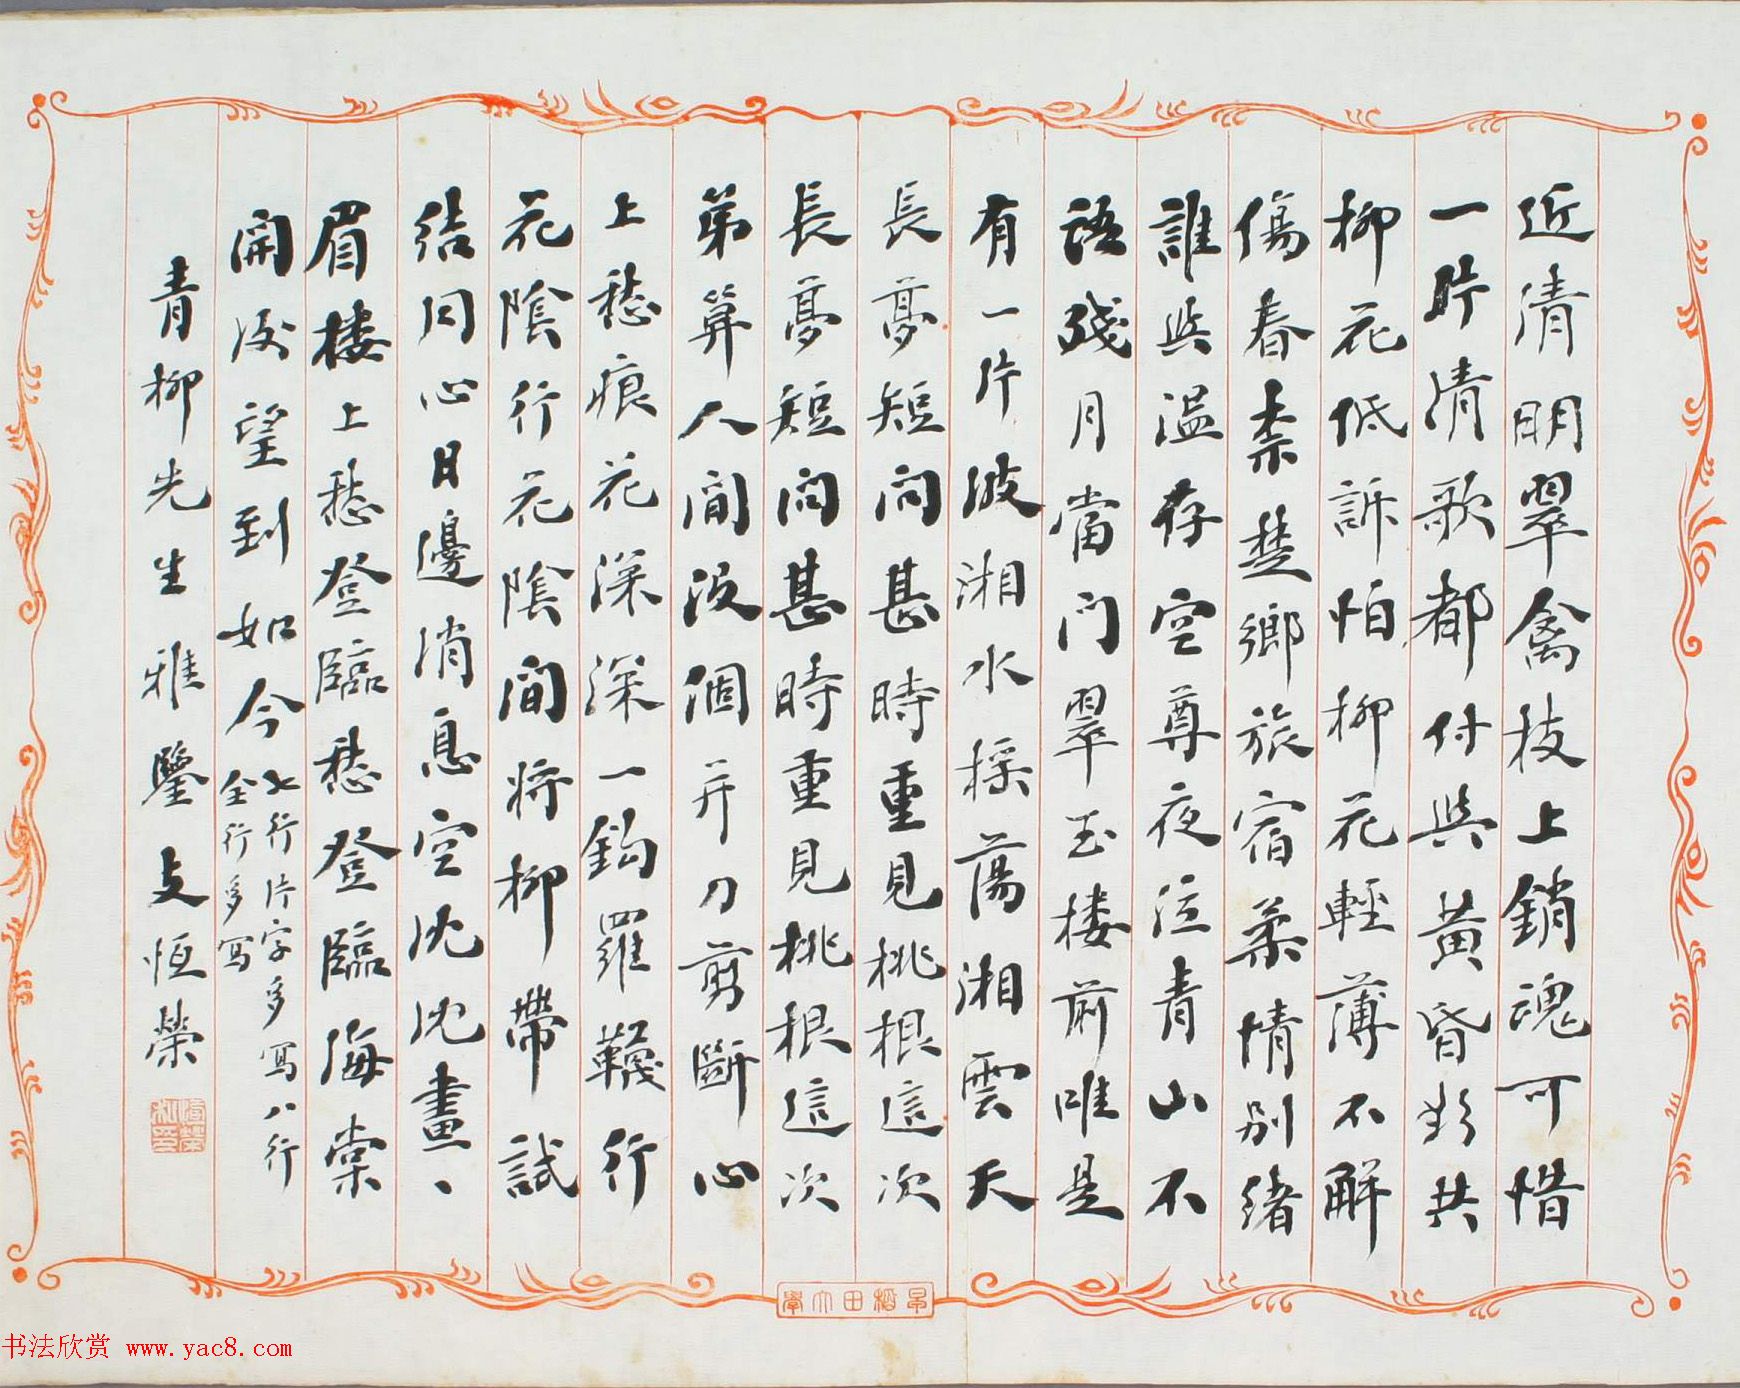 近清明翠禽枝上銷魂可惜
一片清歌都付與黃昏欲共
柳花低訴怕柳花輕薄不解
傷春楚鄉旅宿柔情別緒
誰與溫存空尊夜泣青山不
語殘月當門翠玉樓前唯是
有一片波湘水搖蕩湘雲天
長亭短問甚時重見桃根這次
長亭短問甚時重見桃根這次
第算人間没個并刀剪斷心
上愁痕花深深一鈎羅襪行
花陰行花陰間將柳帶試
結同心日邊消息空沈沈畫、
眉樓上愁登臨愁登臨海棠
開後望到如今
七行片字多寫八行
全行多写
青柳先生雅鑒支恒榮
早稻田大學
书法欣赏 www.yac8.com